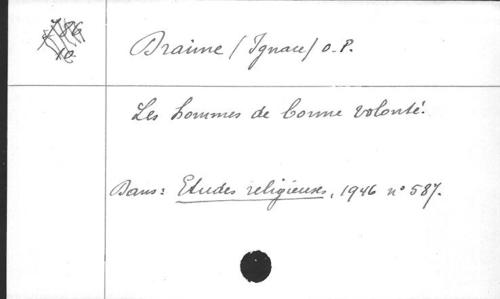 Braime / Ignace / o.p.
Les hommes de bonne volonté.
Dans: Etudes religieuses, 1946 n° 587.